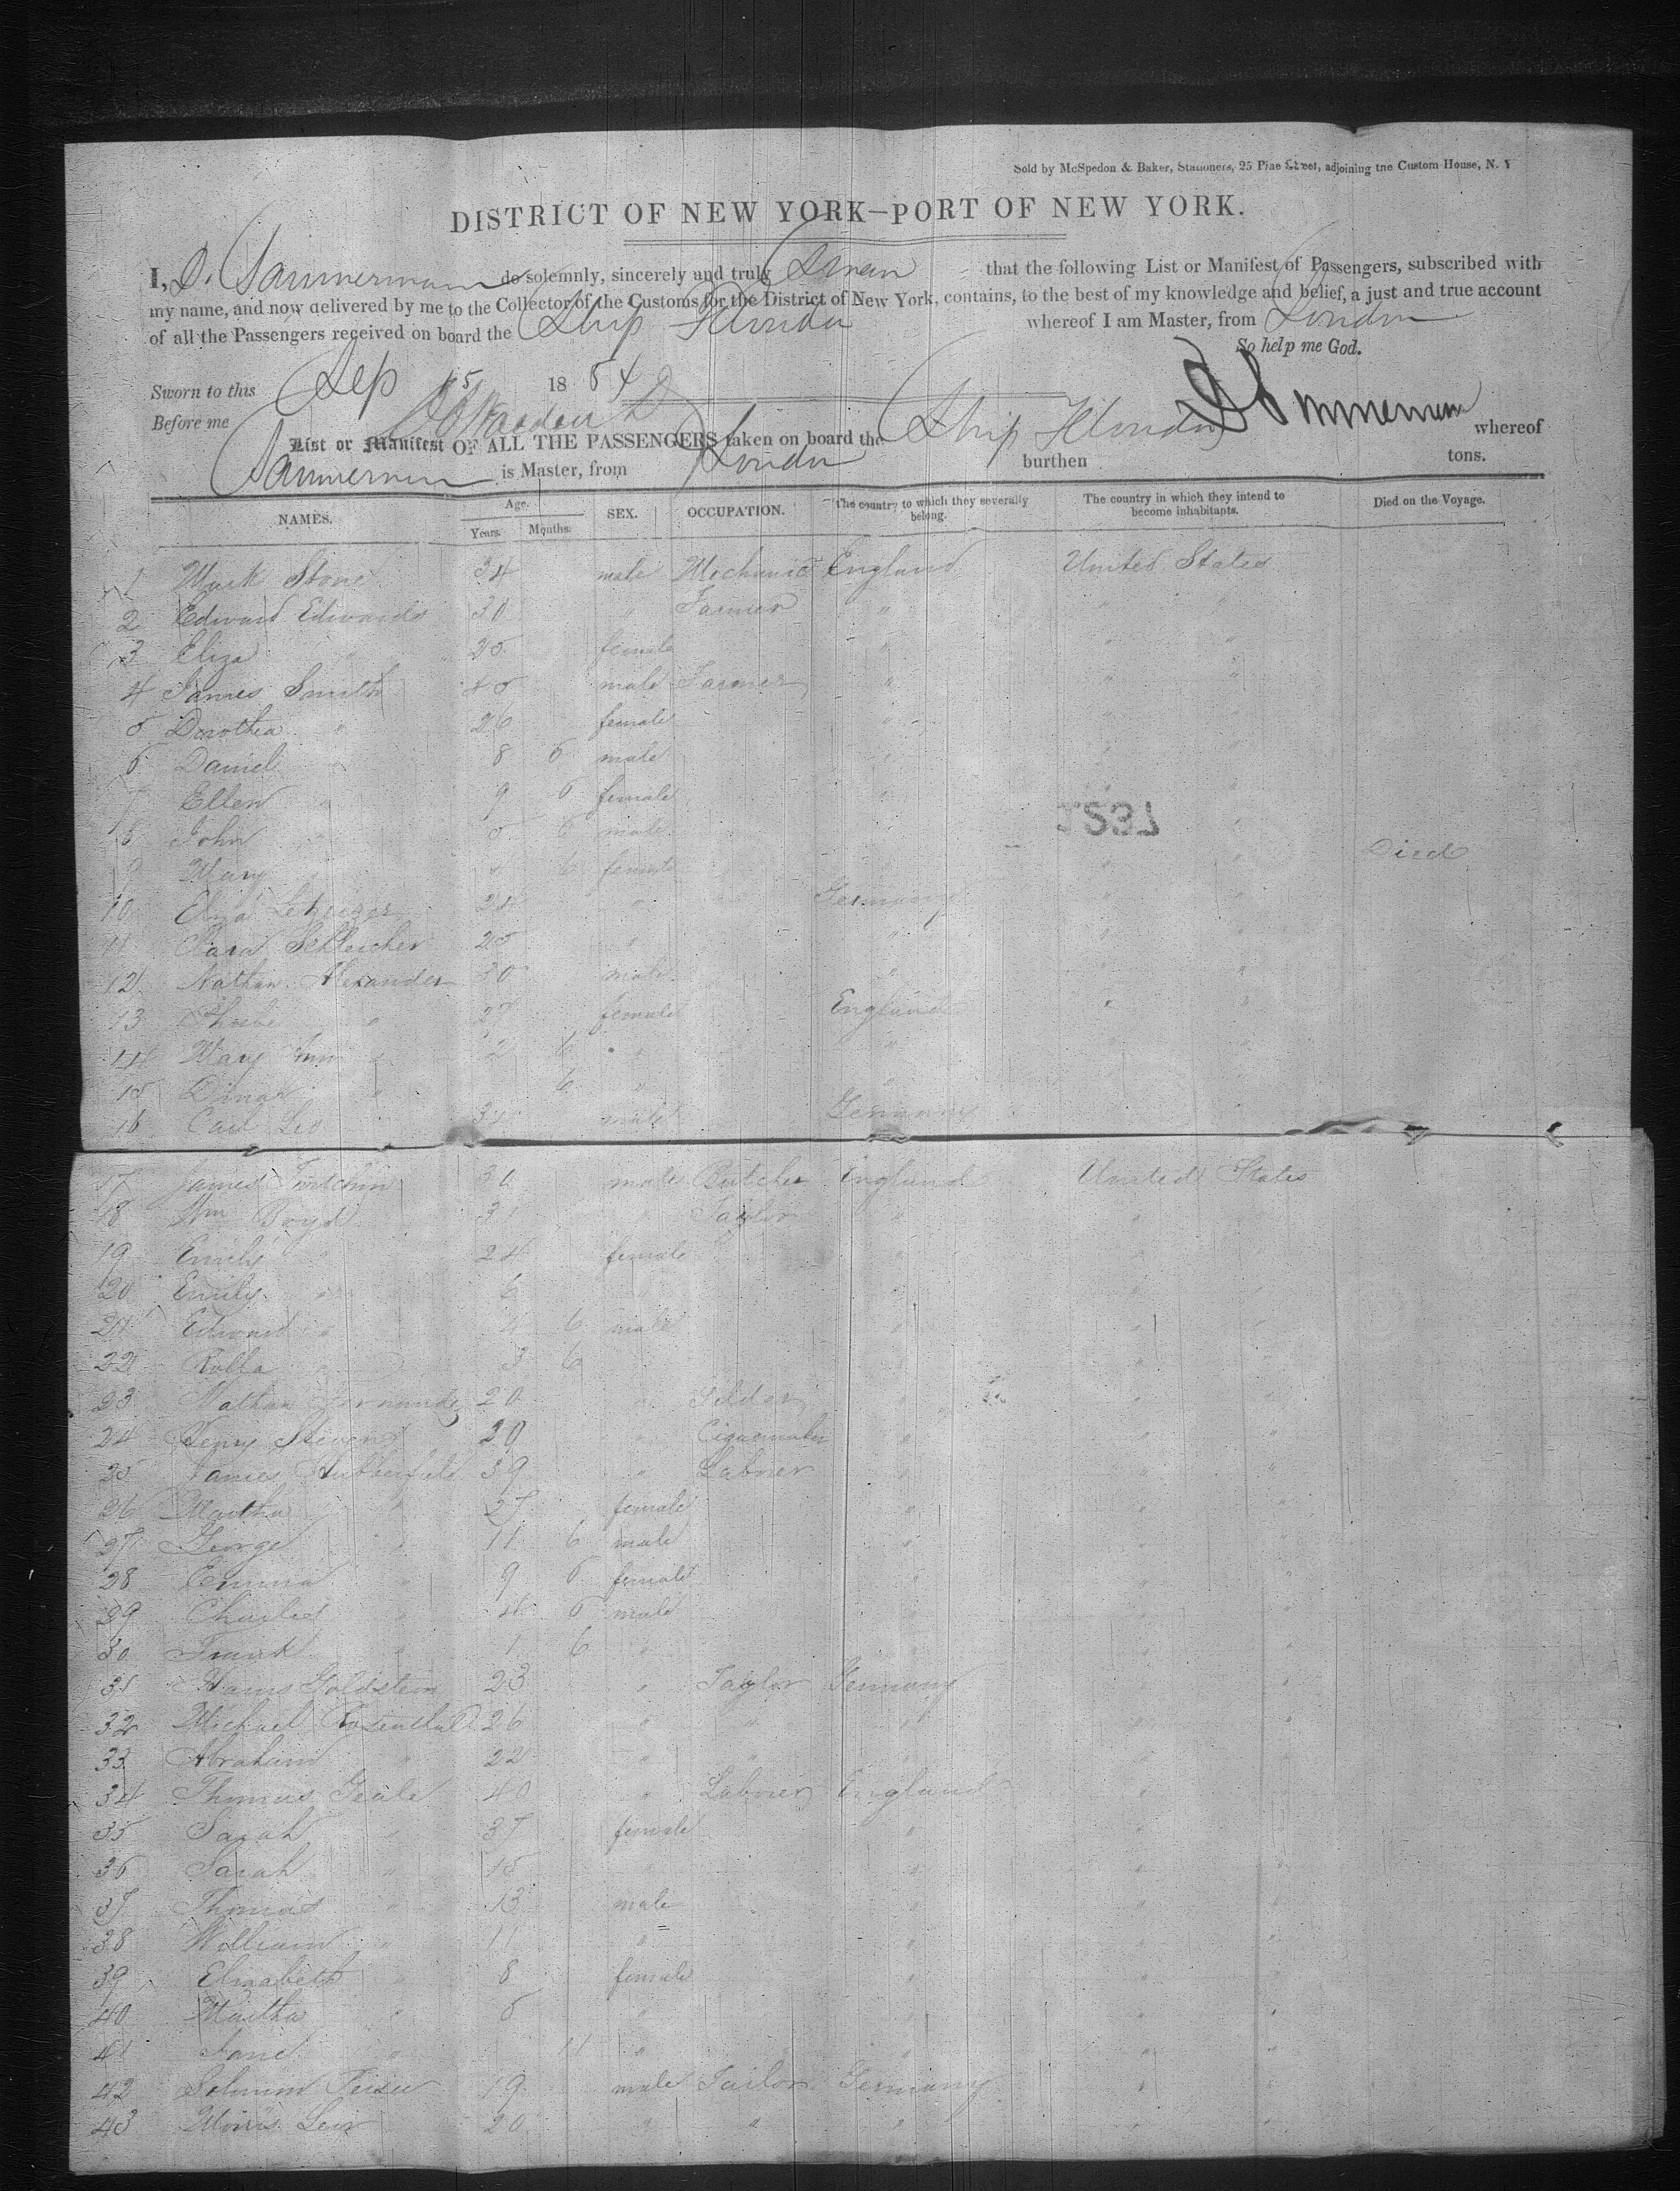 Sold by McSpedon & Baker, Stationers, 25 Pine Street, adjoining the Custom House, N. Y
DISTRICT OF NEW YORK—PORT OF NEW YORK.
I, do solemnly, sincerely and truly Swear that the following List or Manifest of Passengers, subscribed with
my name, and now delivered by me to the Collector of the Customs for the District of New York, contains, to the best of my knowledge and belief, a just and true account
of all the Passengers received on board the Ship whereof I am Master, from London
So help me God.
Sworn to this Sep 15 1854
Before me
List or Manifest OF ALL THE PASSENGERS taken on board the Ship whereof
is Master, from London burthen tons.
NAMES. Age. Years. Months. SEX. OCCUPATION. The country to which they severally belong. The country in which they intend to become inhabitants. Died on the Voyage.
1 Mark Stone 34 male Mechanic England United States
2 Edward Edwards 30 " Farmer " " "
3 Eliza " 25 female " " "
4 James Smith 45 male Farmer " " "
5 Dorothea " 26 female " " "
6 Daniel " 8 6 male " " "
7 Ellen " 9 6 female " " "
8 John " 5 6 male " " "
9 Mary " 6 female " " " Died
10 Eliza 24 " Germany " "
11 Clara Schleicher 25 " " " "
12 Nathan Alexander 30 male " " "
13 Phoebe " 27 female England " "
14 Mary Ann " 2 6 " " " "
15 Dinah " 6 " " " "
16 Carl Leo male Germany
17 James 30 male Butcher England United States
18 Wm Boyd 31 " Taylor " " "
19 Emily " 24 female " " "
20 Emily " 6 " " " "
21 Edward " 4 6 male " " "
22 Rolla " 3 6 " " "
23 Nathan 20 " " " "
24 Henry Stevens 20 " Cigarmaker " " "
25 James Hubberfield 39 " Labourer " " "
26 Martha " 27 female " " "
27 George " 11 6 male " " "
28 Emma " 9 6 female " " "
29 Charles " 4 6 male " " "
30 Frank " 1 6 " " " "
31 Harris Goldstein 23 " Taylor Germany " "
32 Michael Rosenthal 26 " " " " "
33 Abraham " 22 " " " " "
34 Thomas Geale 40 " Labourer England " "
35 Sarah " 37 female " " "
36 Sarah " 15 " " " "
37 Thomas " 13 male " " "
38 William " 11 " " " "
39 Elizabeth " 8 female " " "
40 Martha " 5 " " " "
41 Jane " 11 " " " "
42 Solomon 19 male Tailor Germany " "
43 Morris Levy 20 " " " " "